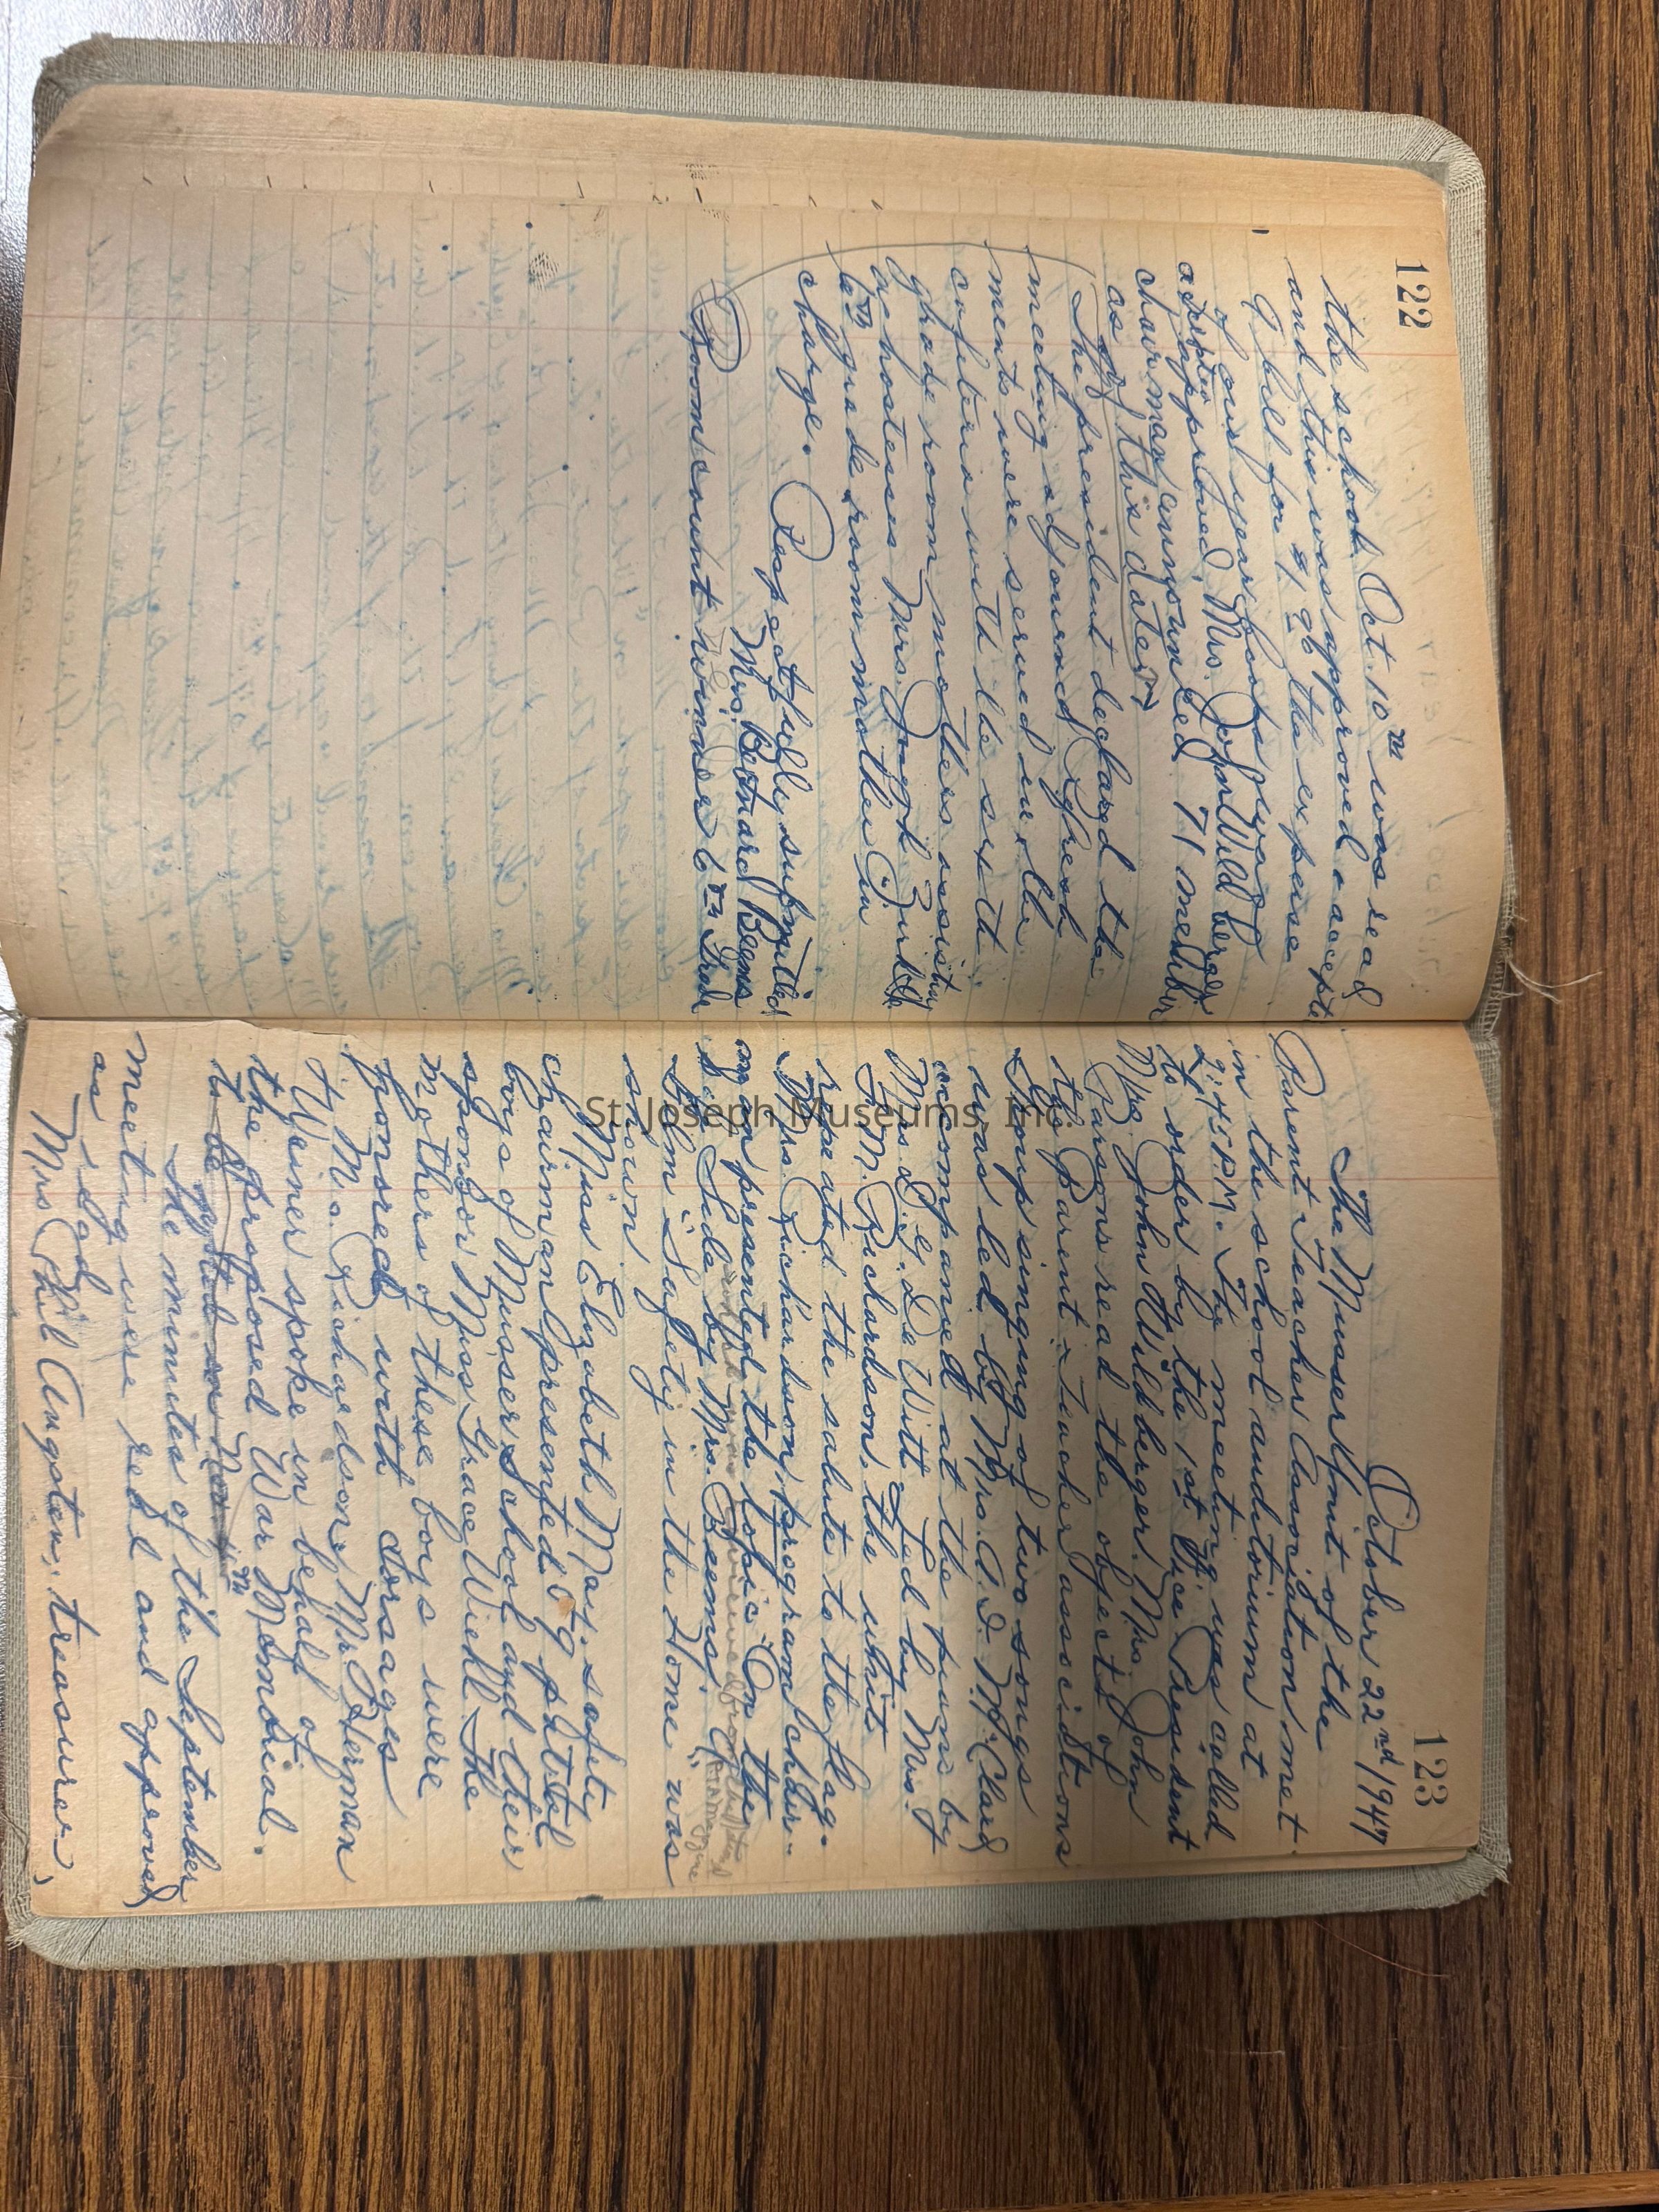 122
the school Oct. 10th was read
and this was approved & accepted
A bill for $1.96 the expense
of our year books was
approved. Mrs. John Wildberger
a skeptic
chairman announced 71 members
as of this date.
The president declared the
meeting adjourned. Refresh
ments were served in the
cafeteria with the sixth
grade room mothers assisting
as hostesses Mrs. Joseph Burkett
6th grade room mother in
charge.
Respectfully submitted
Mrs. Bernard Beems
Room count winner 6th Grade
123
October 22nd 1947
The Musser Unit of the
Parent Teacher Association met
in the school auditorium at
2:45 P.M. The meeting was called
to order by the 1st Vice President
Mrs. John Wildberger. Mrs. John
Parsons read the objects of
the Parent-Teacher associations
Group singing of two songs
was led by Mrs. A. D. McCleod
accompanied at the piano by
Mrs. D. G. De Witt. Led by Mrs.
F. M. Richardson, the unit
repeated the salute to the flag.
Mrs. Richardson, program chair-
man presented the topic "On the
Side by Mrs. Beems. A
film "Safety in the Home" was
shown.
Miss Elizabeth May, safety
chairman presented 9 patrol
boys of Musser School and their
sponsor Miss Grace Wiehl. The
mothers of these boys were
sponsred with corsages
Mrs. Richardson. Mr. Herman
Weiner spoke in behalf of
the proposed War Memorial.
to be on Nov. 11th
The minutes of the September
meeting were read and approved
as read.
Mrs Phil Augsten, treasurer,
St. Joseph Museums, Inc.